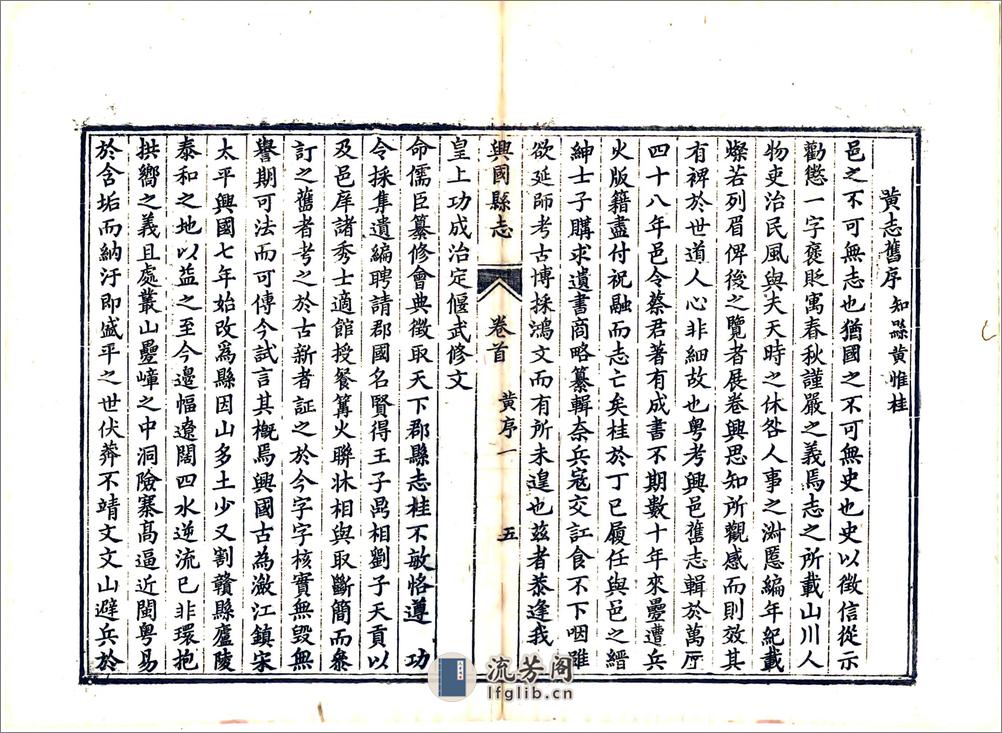 黃志舊序 知縣黃惟桂
邑之不可無志也猶國之不可無史也史以徵信從示
勸懲一字褒貶寓春秋謹嚴之義焉志之所載山川人
物吏治民風與夫天時之休咎人事之淑慝編年紀載
燦若列眉俾後之覽者展卷興思知所觀感而則效其
有裨於世道人心非細故也粤考興邑舊志輯於萬厯
四十八年邑令蔡君著有成書不期數十年來疊遭兵
火版籍盡付祝融而志亡矣桂於丁巳履任與邑之縉
紳士子購求遺書商略纂輯奈兵寇交訌食不下咽雖
欲延師考古博採鴻文而有所未遑也兹者恭逢我
興國縣志 卷首 黃序一 五
皇上功成治定偃武修文
命儒臣纂修會典徵取天下郡縣志桂不敏恪遵 功
令採集遺編聘請郡國名賢得王子禼相劉子天貢以
及邑庠諸秀士適館授餐篝火聯牀相與取斷簡而叅
訂之舊者考之於古新者証之於今字字核實無毀無
譽期可法而可傳今試言其概焉興國古為瀲江鎮宋
太平興國七年始改爲縣因山多土少又割贛縣廬陵
泰和之地以益之至今邊幅遼闊四水逆流已非環抱
拱嚮之義且處叢山疊嶂之中洞險寨髙逼近閩粤易
於含垢而納汙即盛平之世伏莽不靖文文山避兵於
流芳阁
lfglib.cn